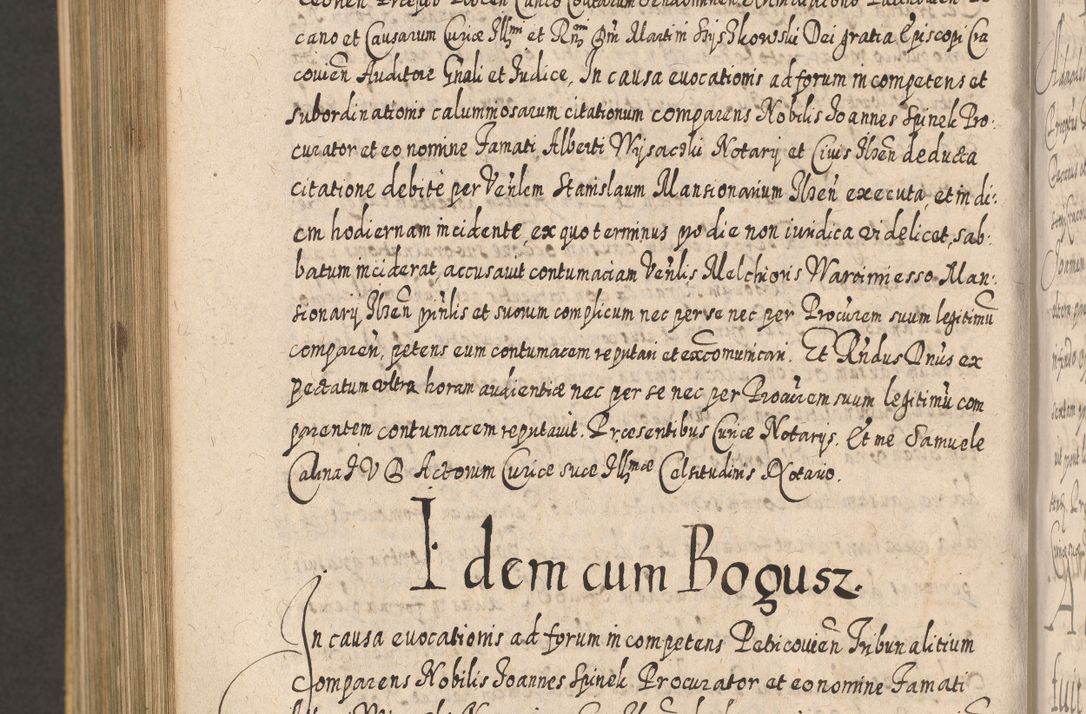 cano et Causarum Curiæ Illmi et Rndmi Dni Martini Szyszkowski Dei gratia Episcopi Cra
covien̄ Auditore Gnali et Judice, In causa evocationis ad forum incompetens et
subordinationis calumniosarum citationum comparens Nobilis Joannes Spinek Pro-
curator et eo nomine Famati Alberti Wysaczki Notarij et Civis Ilzen̄ deducta
citatione debitè per Ven̄lem Stanislaum Mansionarium Ilzen̄ executa, et in di-
em hodiernam incidente, ex quo terminus pro die non iuridica videlicet, sab-
batum inciderat, accusavit contumaciam Ven̄lis Melchioris Warcimiesso Man-
sionarij Ilzen̄ prin̄lis et suorum complicum nec per se nec per Procūrem suum legitimū
comparen̄, petens eum contumacem reputari et excōmunicari. Et Rn̄dus Dn̄us ex
pectatum ultra horam audientiæ nec per se nec per Procūrem suum legitimū com
parentem contumacem reputavit. Præsentibus Curiæ Notarijs. Et me Samuele
Calina I V D Actorum Curiæ suæ Illmæ Celsitudinis Notario.
Idem cum Bogusz.
In causa evocationis ad forum incompetens Petricovien̄ Tribunalitium
Comparens Nobilis Joannes Spinek Procurator et eo nomine Famati